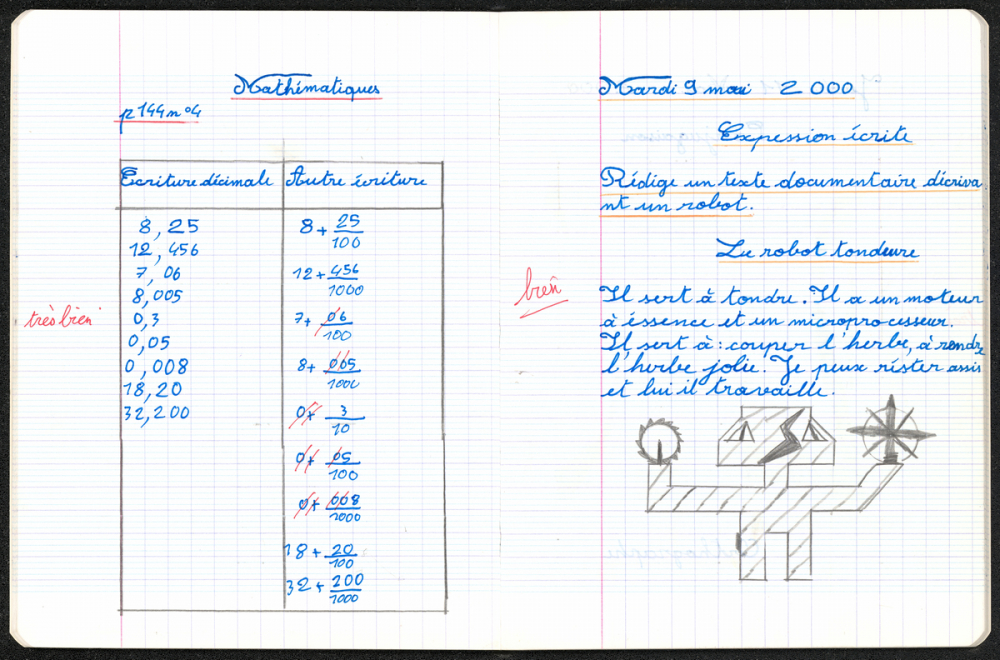 Mathématiques
p 144 n°4
Ecriture décimale Autre écriture
8,25 8 + 25/100
12,456 12 + 456/1000
7,06 7 + 06/100
8,005 8 + 005/1000
0,3 0 + 3/10
0,05 0 + 05/100
0,008 0 + 008/1000
18,20 18 + 20/100
32,200 32 + 200/1000
très bien
Mardi 9 mai 2000
Expression écrite
Rédige un texte documentaire décriva
nt un robot.
Le robot tondeure
bien
Il sert à tondre. Il a un moteur
à éssence et un microprocesseur.
Il sert à : couper l'herbe, à rendre
l'herbe jolie. Je peux réster assis
et lui il travaille.